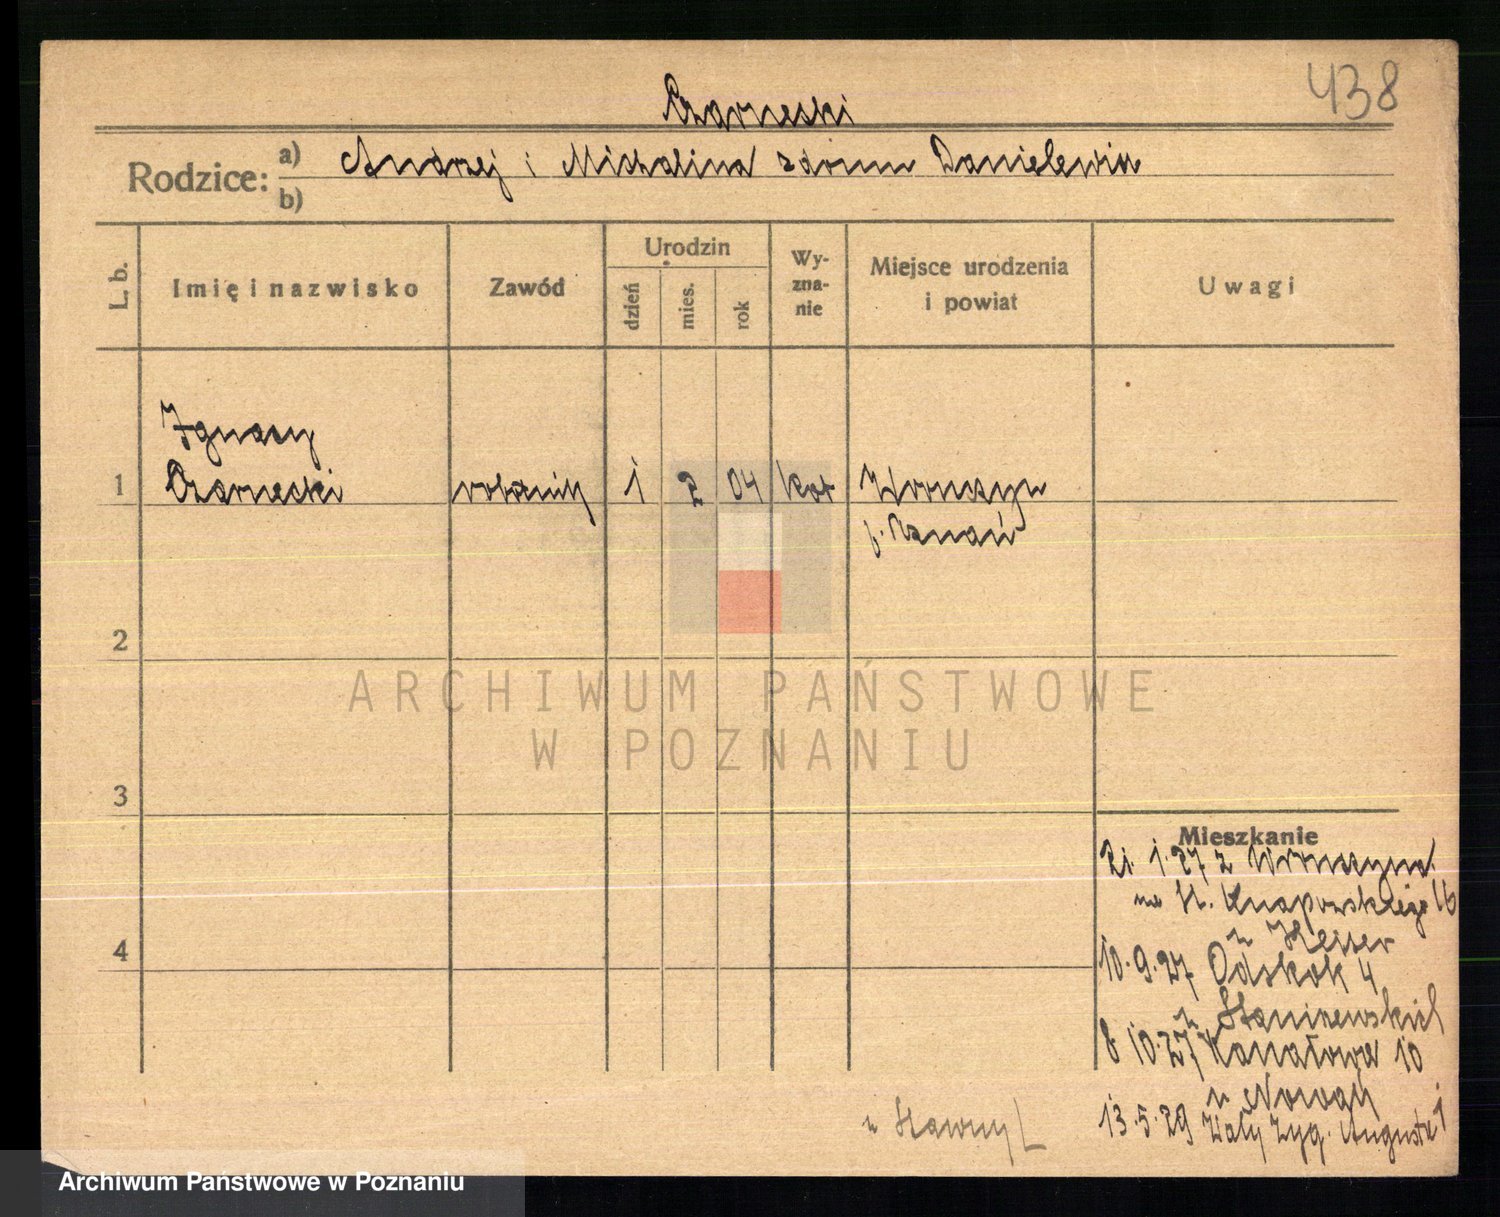 438
Czarnecki
Rodzice: a) Andrzej i Michalina z domu Danielewicz
b)
L. b. Imię i nazwisko Zawód Urodzin dzień mies. rok Wy-zna-nie Miejsce urodzenia i powiat Uwagi
Ignacy
1 Czarnecki robotnik 1 2 04 kat Wronczyn
p. Poznań
2
3
4
ARCHIWUM PAŃSTWOWE
W POZNANIU
Mieszkanie
21. 1. 27 z Wronczyna
na St. Knapowskiego 16
u Hesser
10.9.27 Odskok 4
u Staniszewskich
8 10.27 Kanałowa 10
u Nowak
13.5.29 Wały Zyg. Augusta 1
u Sławny
Archiwum Państwowe w Poznaniu